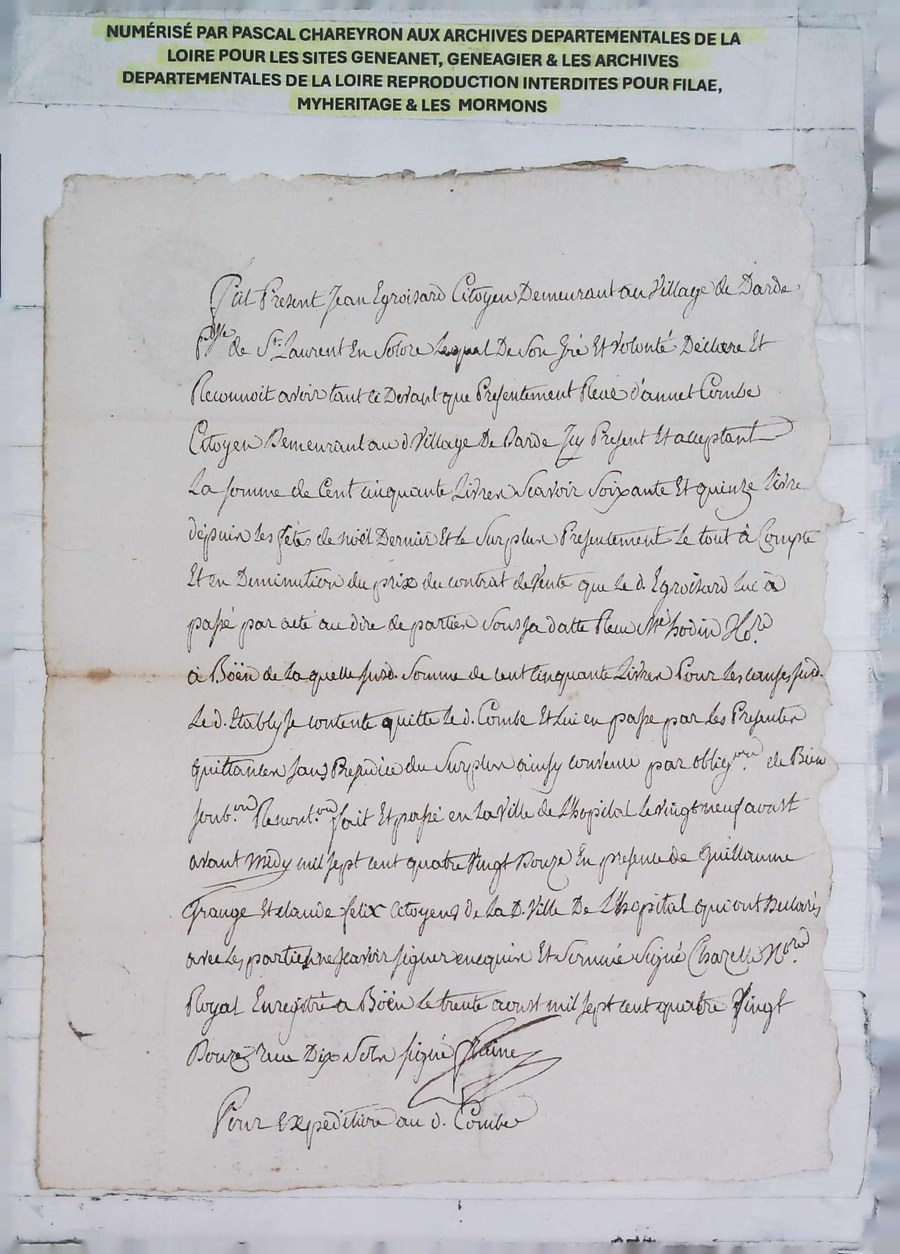 NUMÉRISÉ PAR PASCAL CHAREYRON AUX ARCHIVES DEPARTEMENTALES DE LA
LOIRE POUR LES SITES GENEANET, GENEAGIER & LES ARCHIVES
DEPARTEMENTALES DE LA LOIRE REPRODUCTION INTERDITES POUR FILAE,
MYHERITAGE & LES MORMONS
Fut Present Jean Egroisard Citoyen Demeurant au Village de Darde
psse de St. Laurent En Solore Lequel De Son Gré Et Volonté Déclare Et
Reconnoit avoir tant ce Devant que Presentement Reçu d'annet Combe
Citoyen Demeurant au d. Village De Darde Icy Present Et acceptant
La somme de Cent cinquante Livres Scavoir Soixante Et quinze Livre
depuis les fétes de noël Dernier Et le Surplus Presentement Le tout à Compte
Et en Deminution du prix du contrat de Vente que Le d. Egroisard Luc à
passé par acte au dire de parties Sous sa datte Reçu Me No.re
à Boën de La quelle susd. Somme de Cent Cinquante Livres Pour Les causes susd.
Le d. Etably Se contente quitte Le d. Combe Et Lui en passe par Les Presentes
quittances sans Prejudice du Surplus ainsy convenu par oblig.on de Bien
soub.on Renont.on fait Et passé en La Ville de L'hopital Le vingt neuf aoust
avant midy mil sept cent quatre Vingt Douze En presence de Guillaume
Grange Et claude felix Citoyens de La D. Ville De L'hopital qui ont Declarés
avec Les parties ne scavoir signer enequin Et Sommé Signé Chazelle No.re
Royal Enregistré a Boën Le trente aoust mil sept cent quatre Vingt
Douze Reçu Dix Sols signé
Pour expeditire au d. Combe